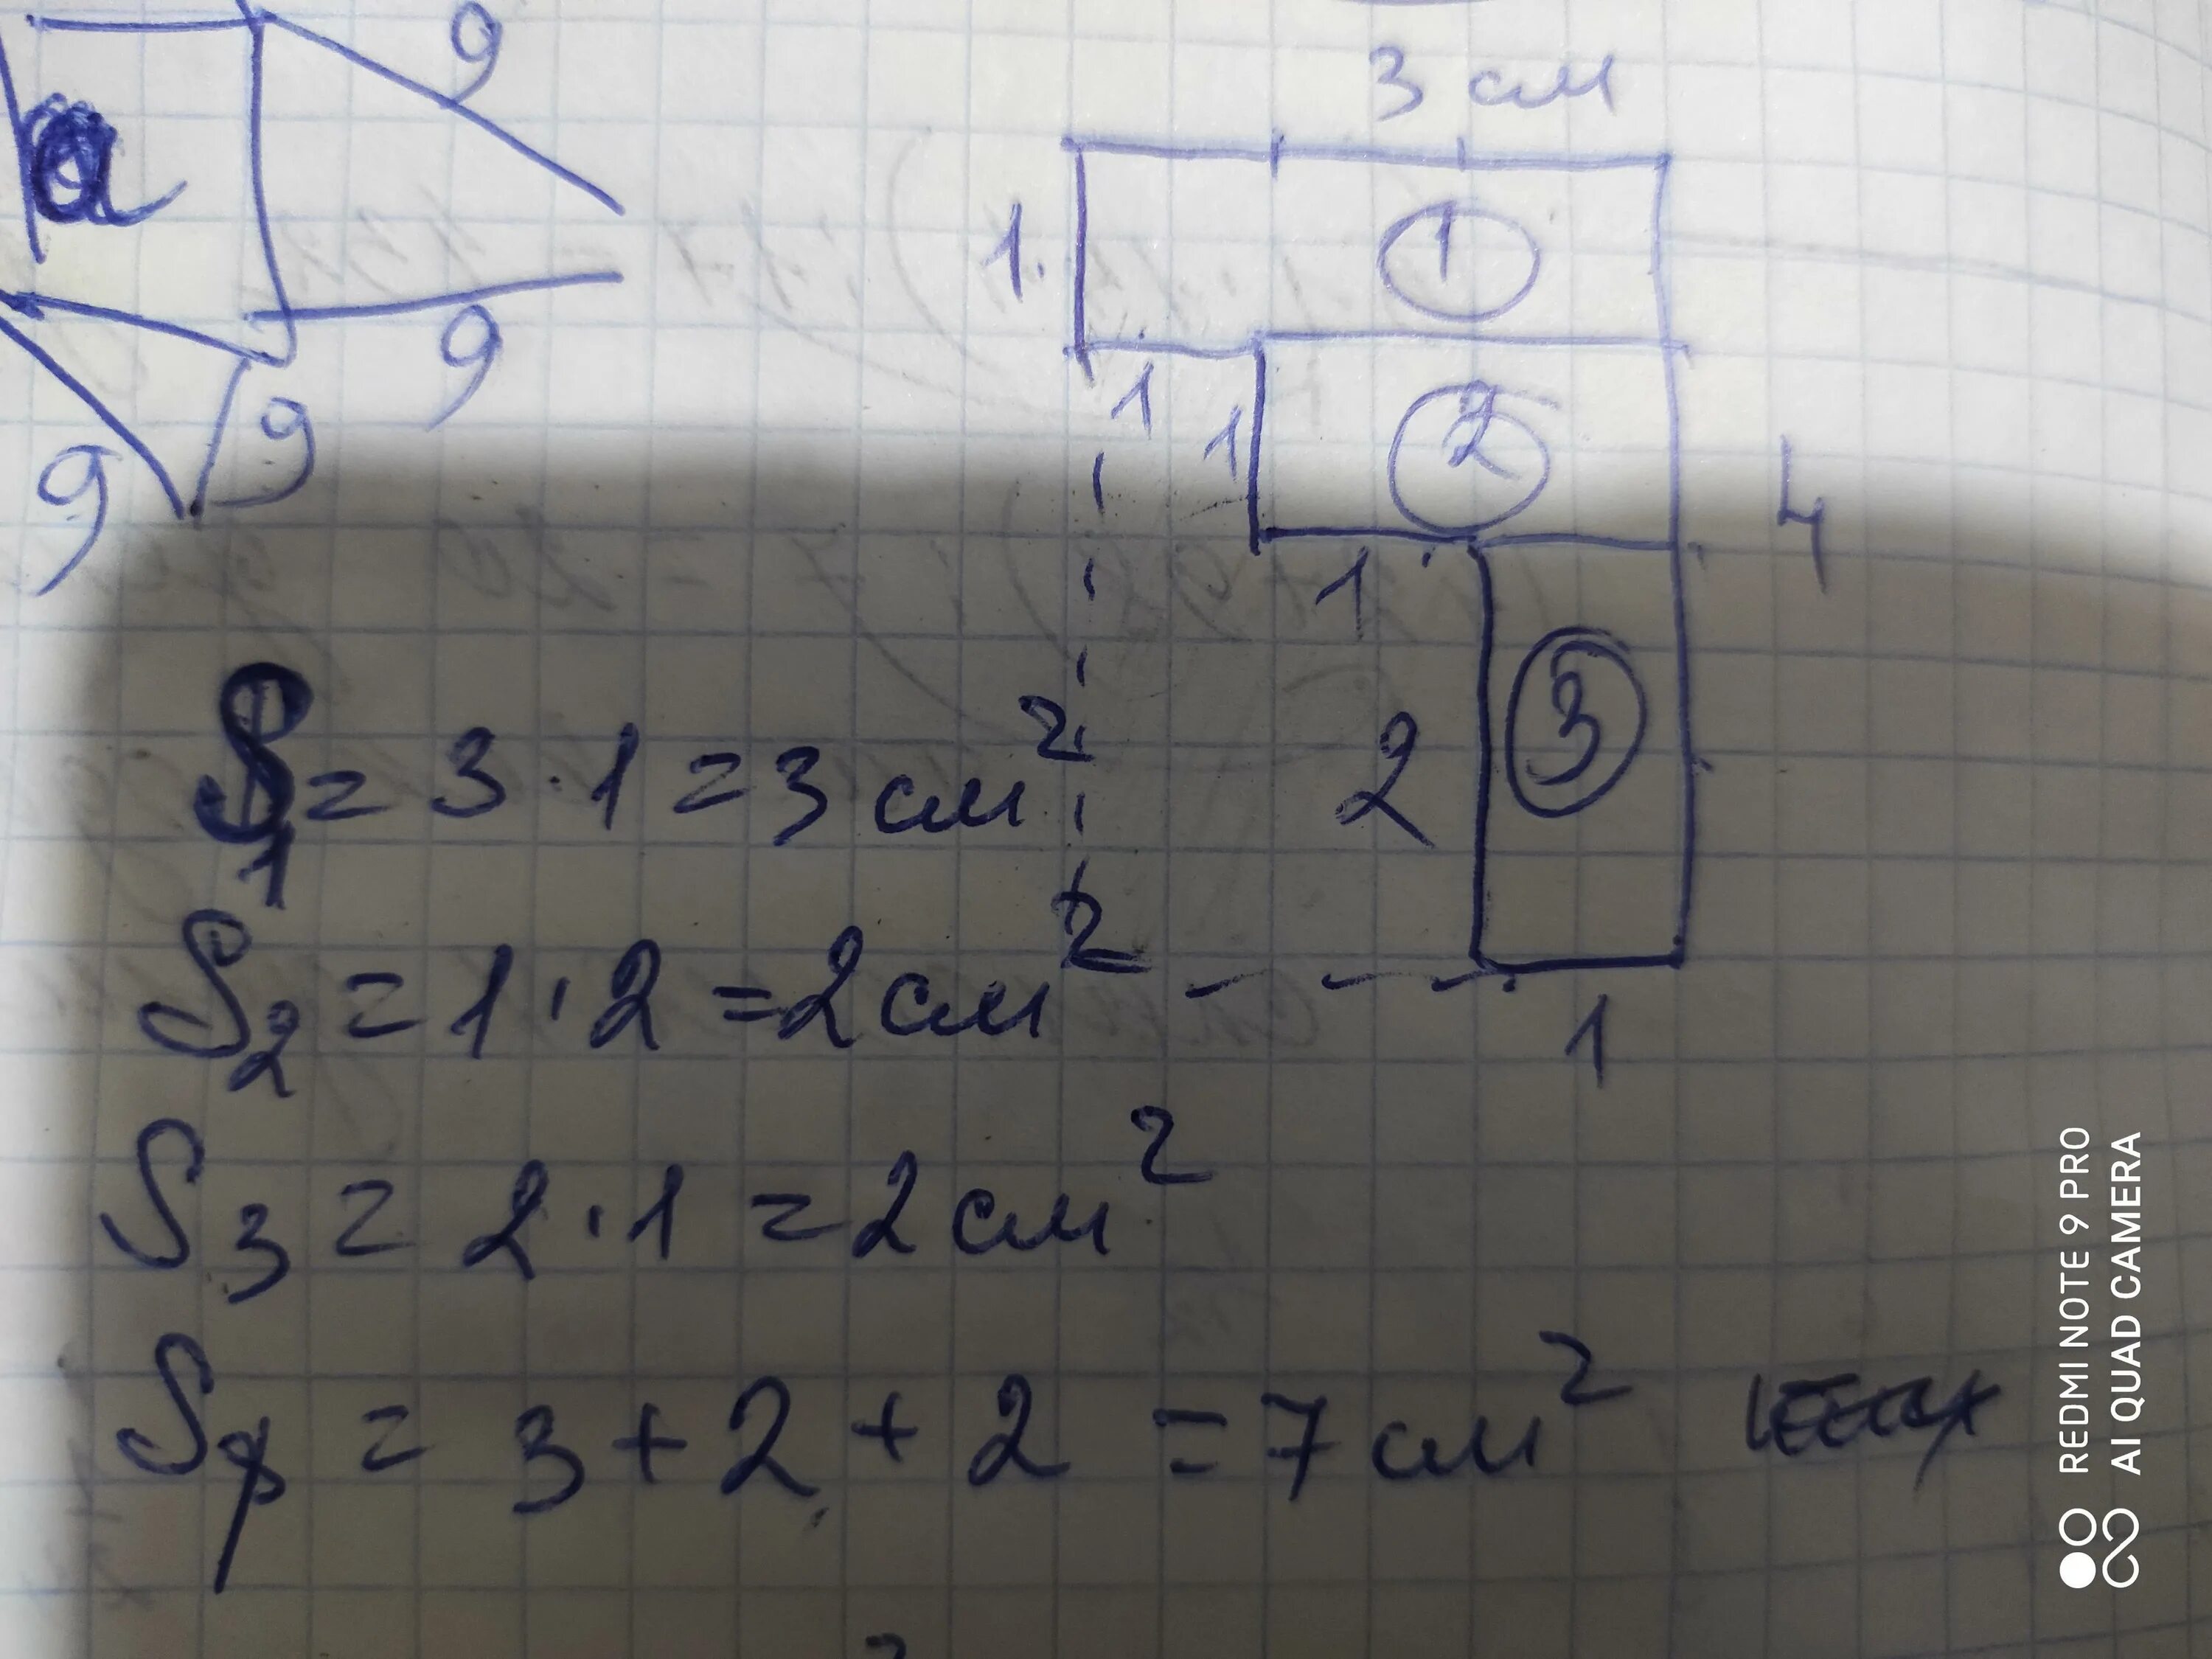 a
9
9
9
9
3 см
1
1
1
1
2
4
1
2
3
1
S₁ = 3 · 1 = 3 см²
S₂ = 1 · 2 = 2 см²
S₃ = 2 · 1 = 2 см²
Sφ = 3 + 2 + 2 = 7 см²
REDMI NOTE 9 PRO
AI QUAD CAMERA